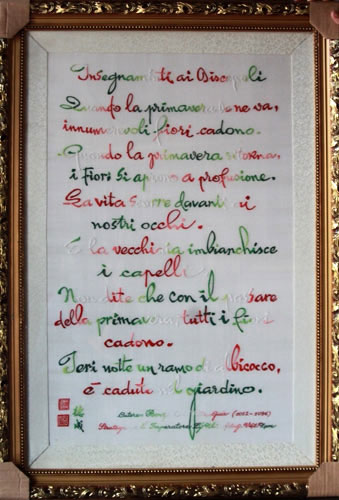 Insegnamenti ai Discepoli
Quando la primavera se ne va,
innumerevoli fiori cadono.
Quando la primavera ritorna,
i fiori si aprono a profusione.
La vita scorre davanti ai
nostri occhi.
E la vecchiaia imbianchisce
i capelli
Non dite che con il passare
della primavera, tutti i fiori
cadono.
Ieri notte un ramo di albicocco,
é caduto nel giardino.